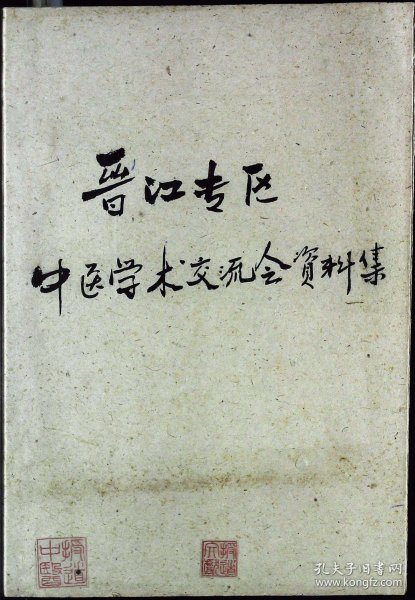 晋江专区
中医学术交流会资料集
孔夫子旧书网
www.kongfz.com